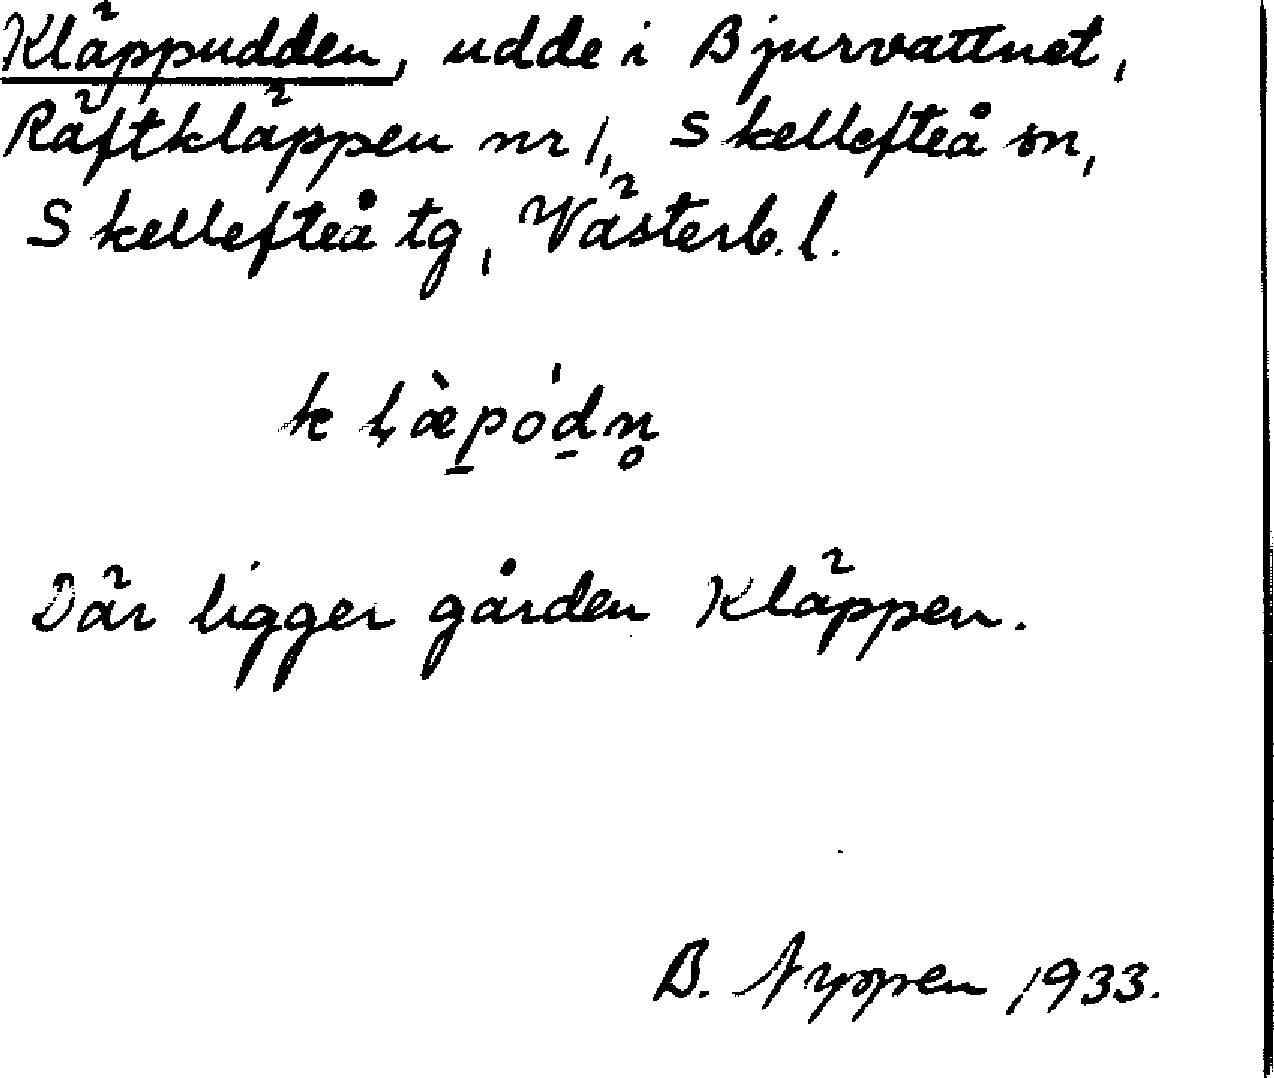 Kläppudden, udde i Bjurvattnet,
Räftkläppen nr 1, Skellefteå sn,
Skellefteå tg, Västerb. l.
kḷæ̀p̱ó̱ḏn̥
Där ligger gården Kläppen.
B. Nyppen 1933.